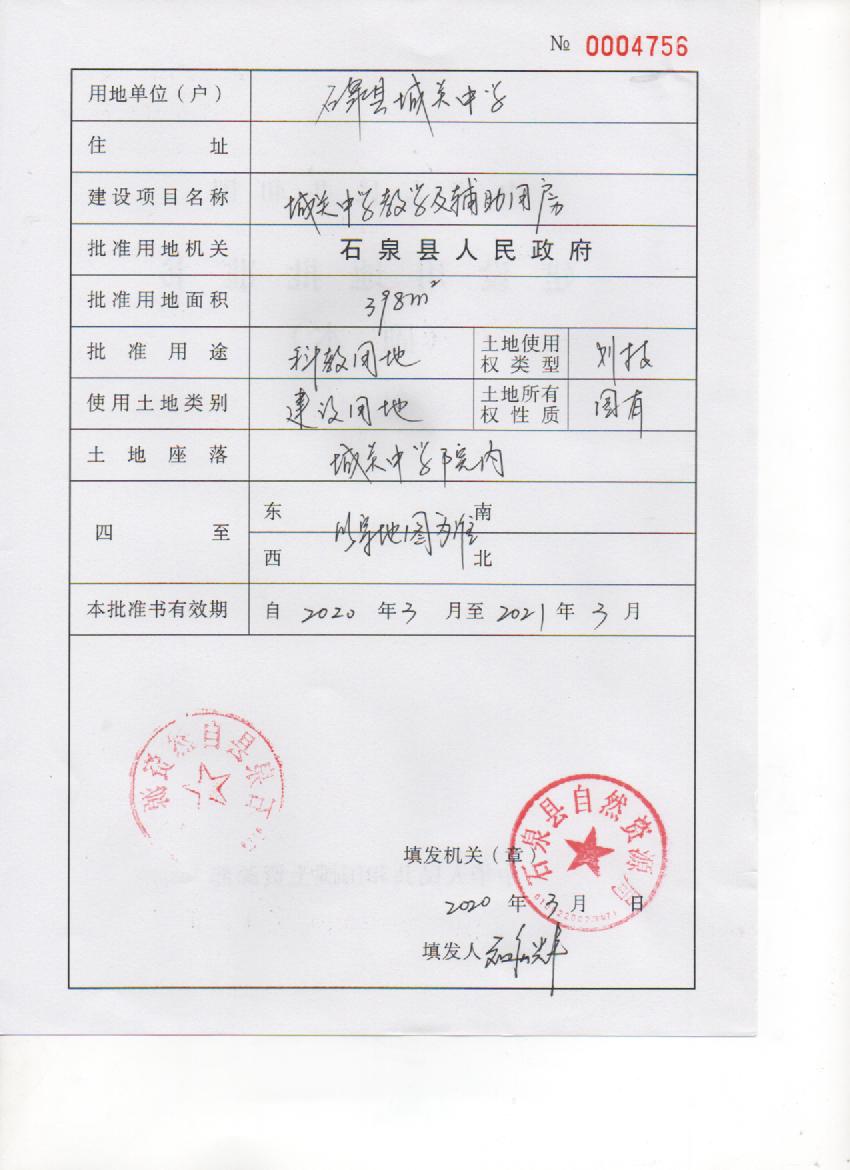 № 0004756
用地单位（户） 石泉县城关中学
住 址
建设项目名称 城关中学教学及辅助用房
批准用地机关 石泉县人民政府
批准用地面积 398m²
批准用途 科教用地 土地使用权类型 划拨
使用土地类别 建设用地 土地所有权性质 国有
土地座落 城关中学院内
四 至 东 南
以宗地图为准
西 北
本批准书有效期 自 2020 年 3 月至 2021 年 3 月
石泉县自然资源
石泉县自然资源局
填发机关（章）
2020 年 3 月 日
填发人